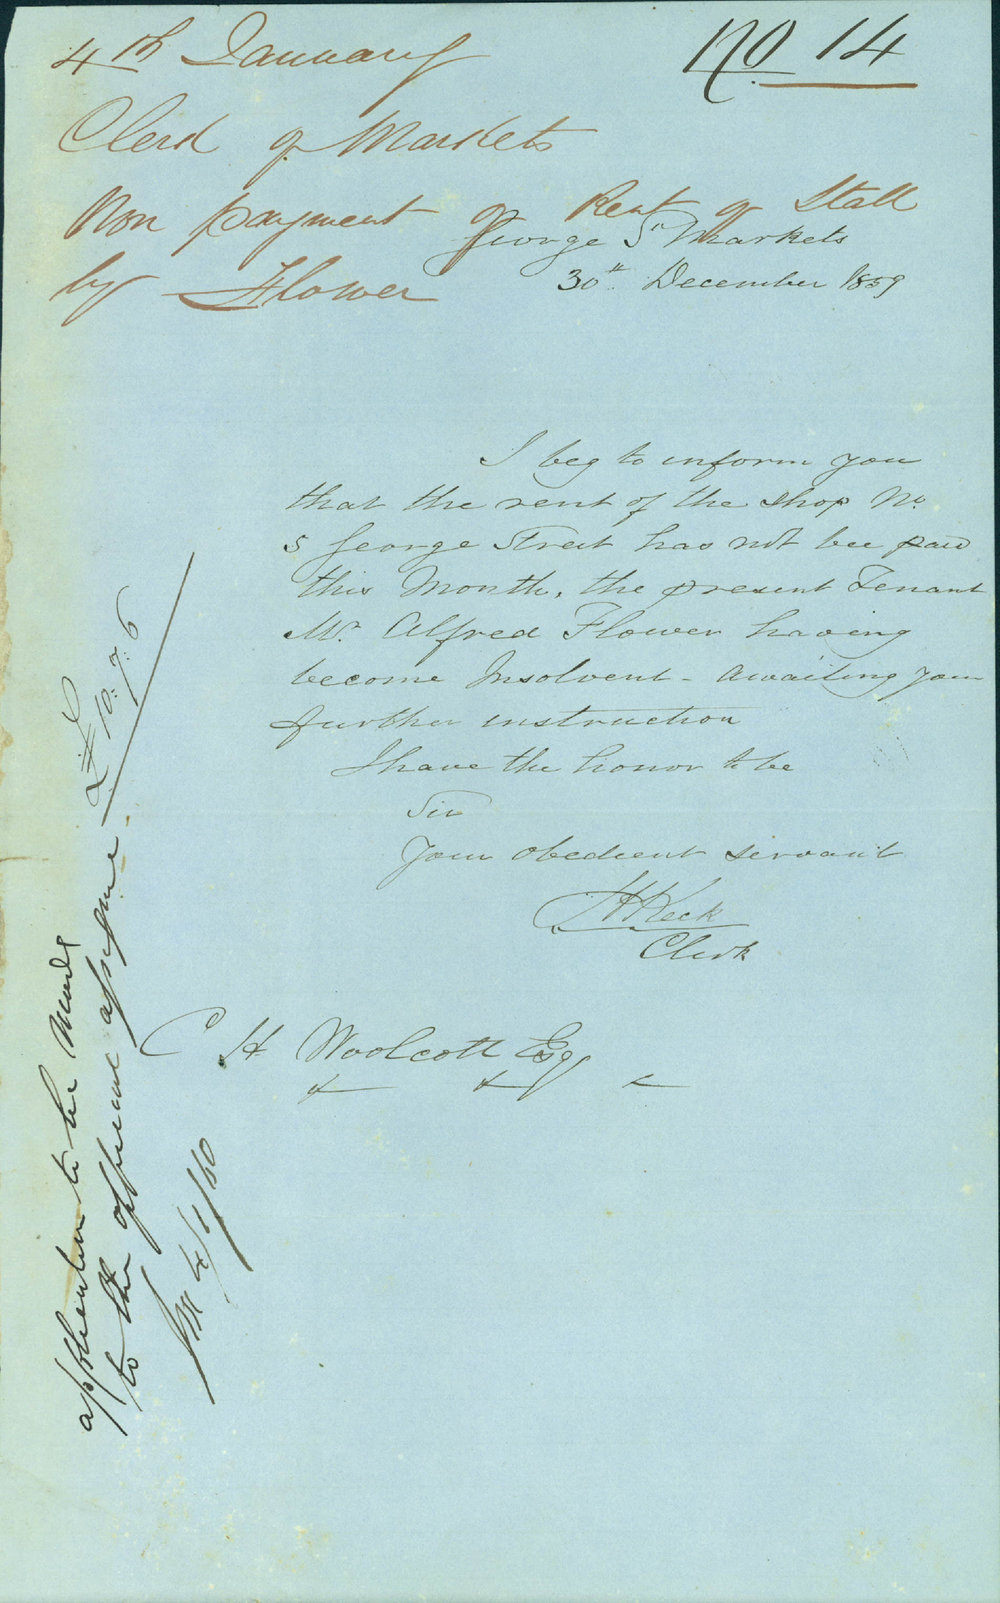 4th January
No 14
Clerk of Markets
Non payment of Rent of Stall
by Flower
George St Markets
30th December 1859
I beg to inform you
that the rent of the shop No
5 George Street has not bee paid
this Month, the present Tenant
Mr Alfred Flower having
become Insolvent - Awaiting your
further instruction
I have the honor to be
Sir
Your obedient servant
H Keck
Clerk
C H Woolcott Esq
application to be made
to the official assignee £10.7.6
4/1/60